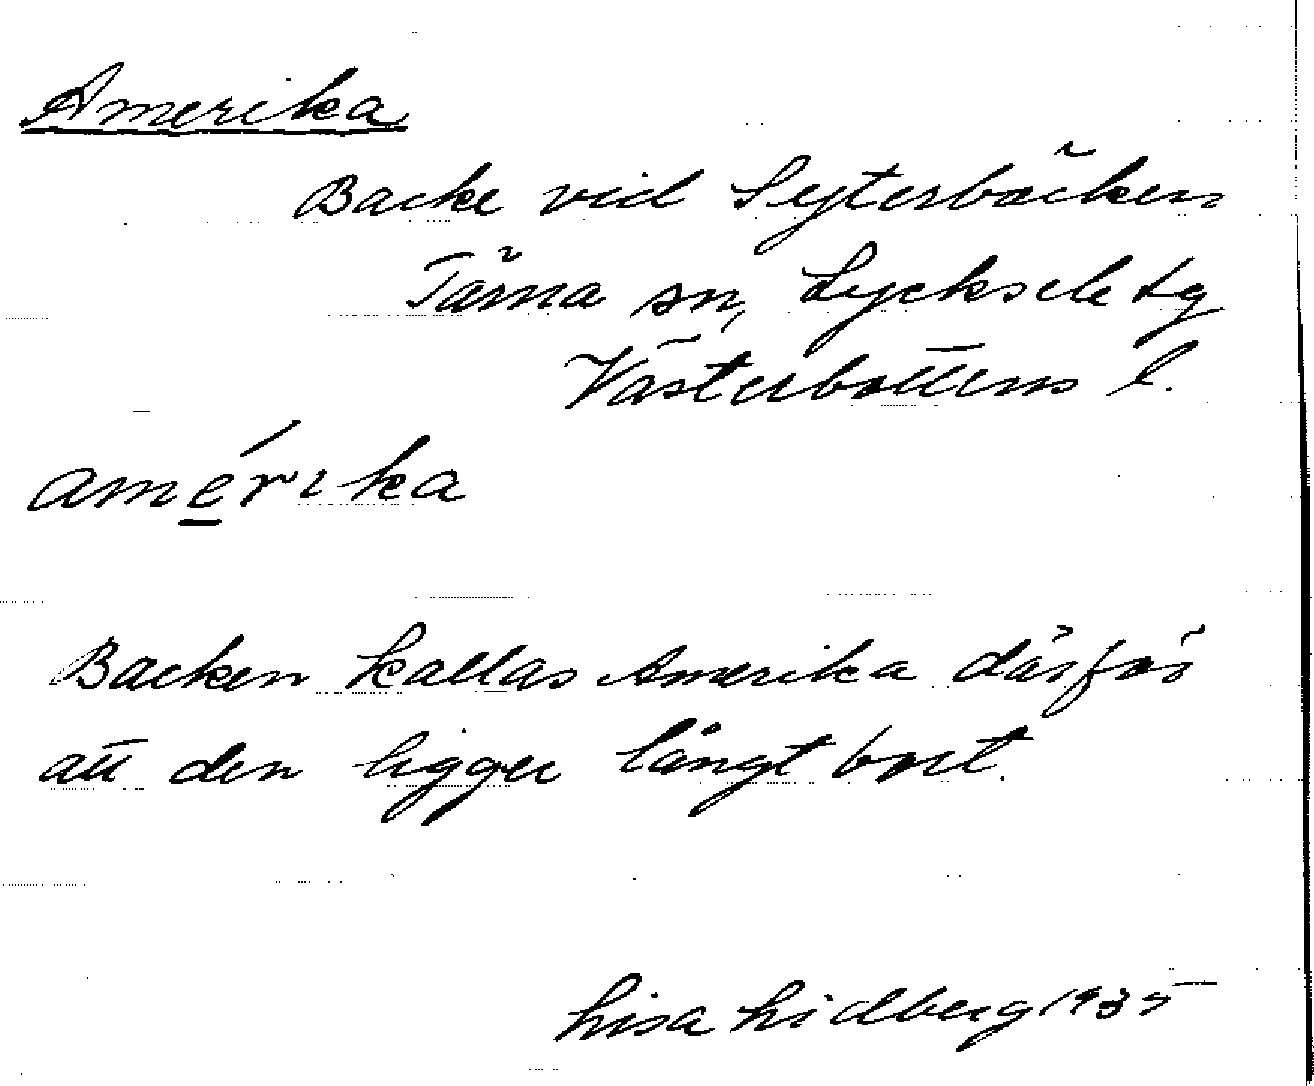 Amerika
Backe vid Syterbäcken
Tärna sn, Lycksele tg
Västerbottens l.
amérika
Backen kallas Amerika därför
att den ligger långt bort.
Lisa Lidberg 1935